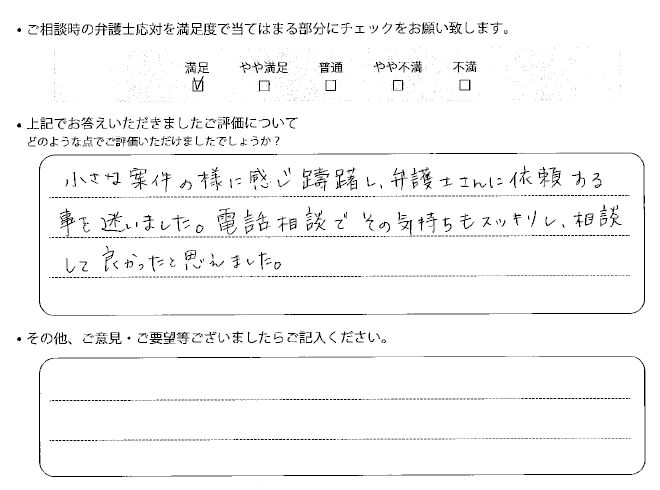 ・ご相談時の弁護士応対を満足度で当てはまる部分にチェックをお願い致します。
満足 やや満足 普通 やや不満 不満
☑ □ □ □ □
・上記でお答えいただきましたご評価について
どのような点でご評価いただけましたでしょうか？
小さな案件の様に感じ躊躇し、弁護士さんに依頼する
事を迷いました。電話相談でその気持ちもスッキリし、相談
して良かったと思えました。
・その他、ご意見・ご要望等ございましたらご記入ください。